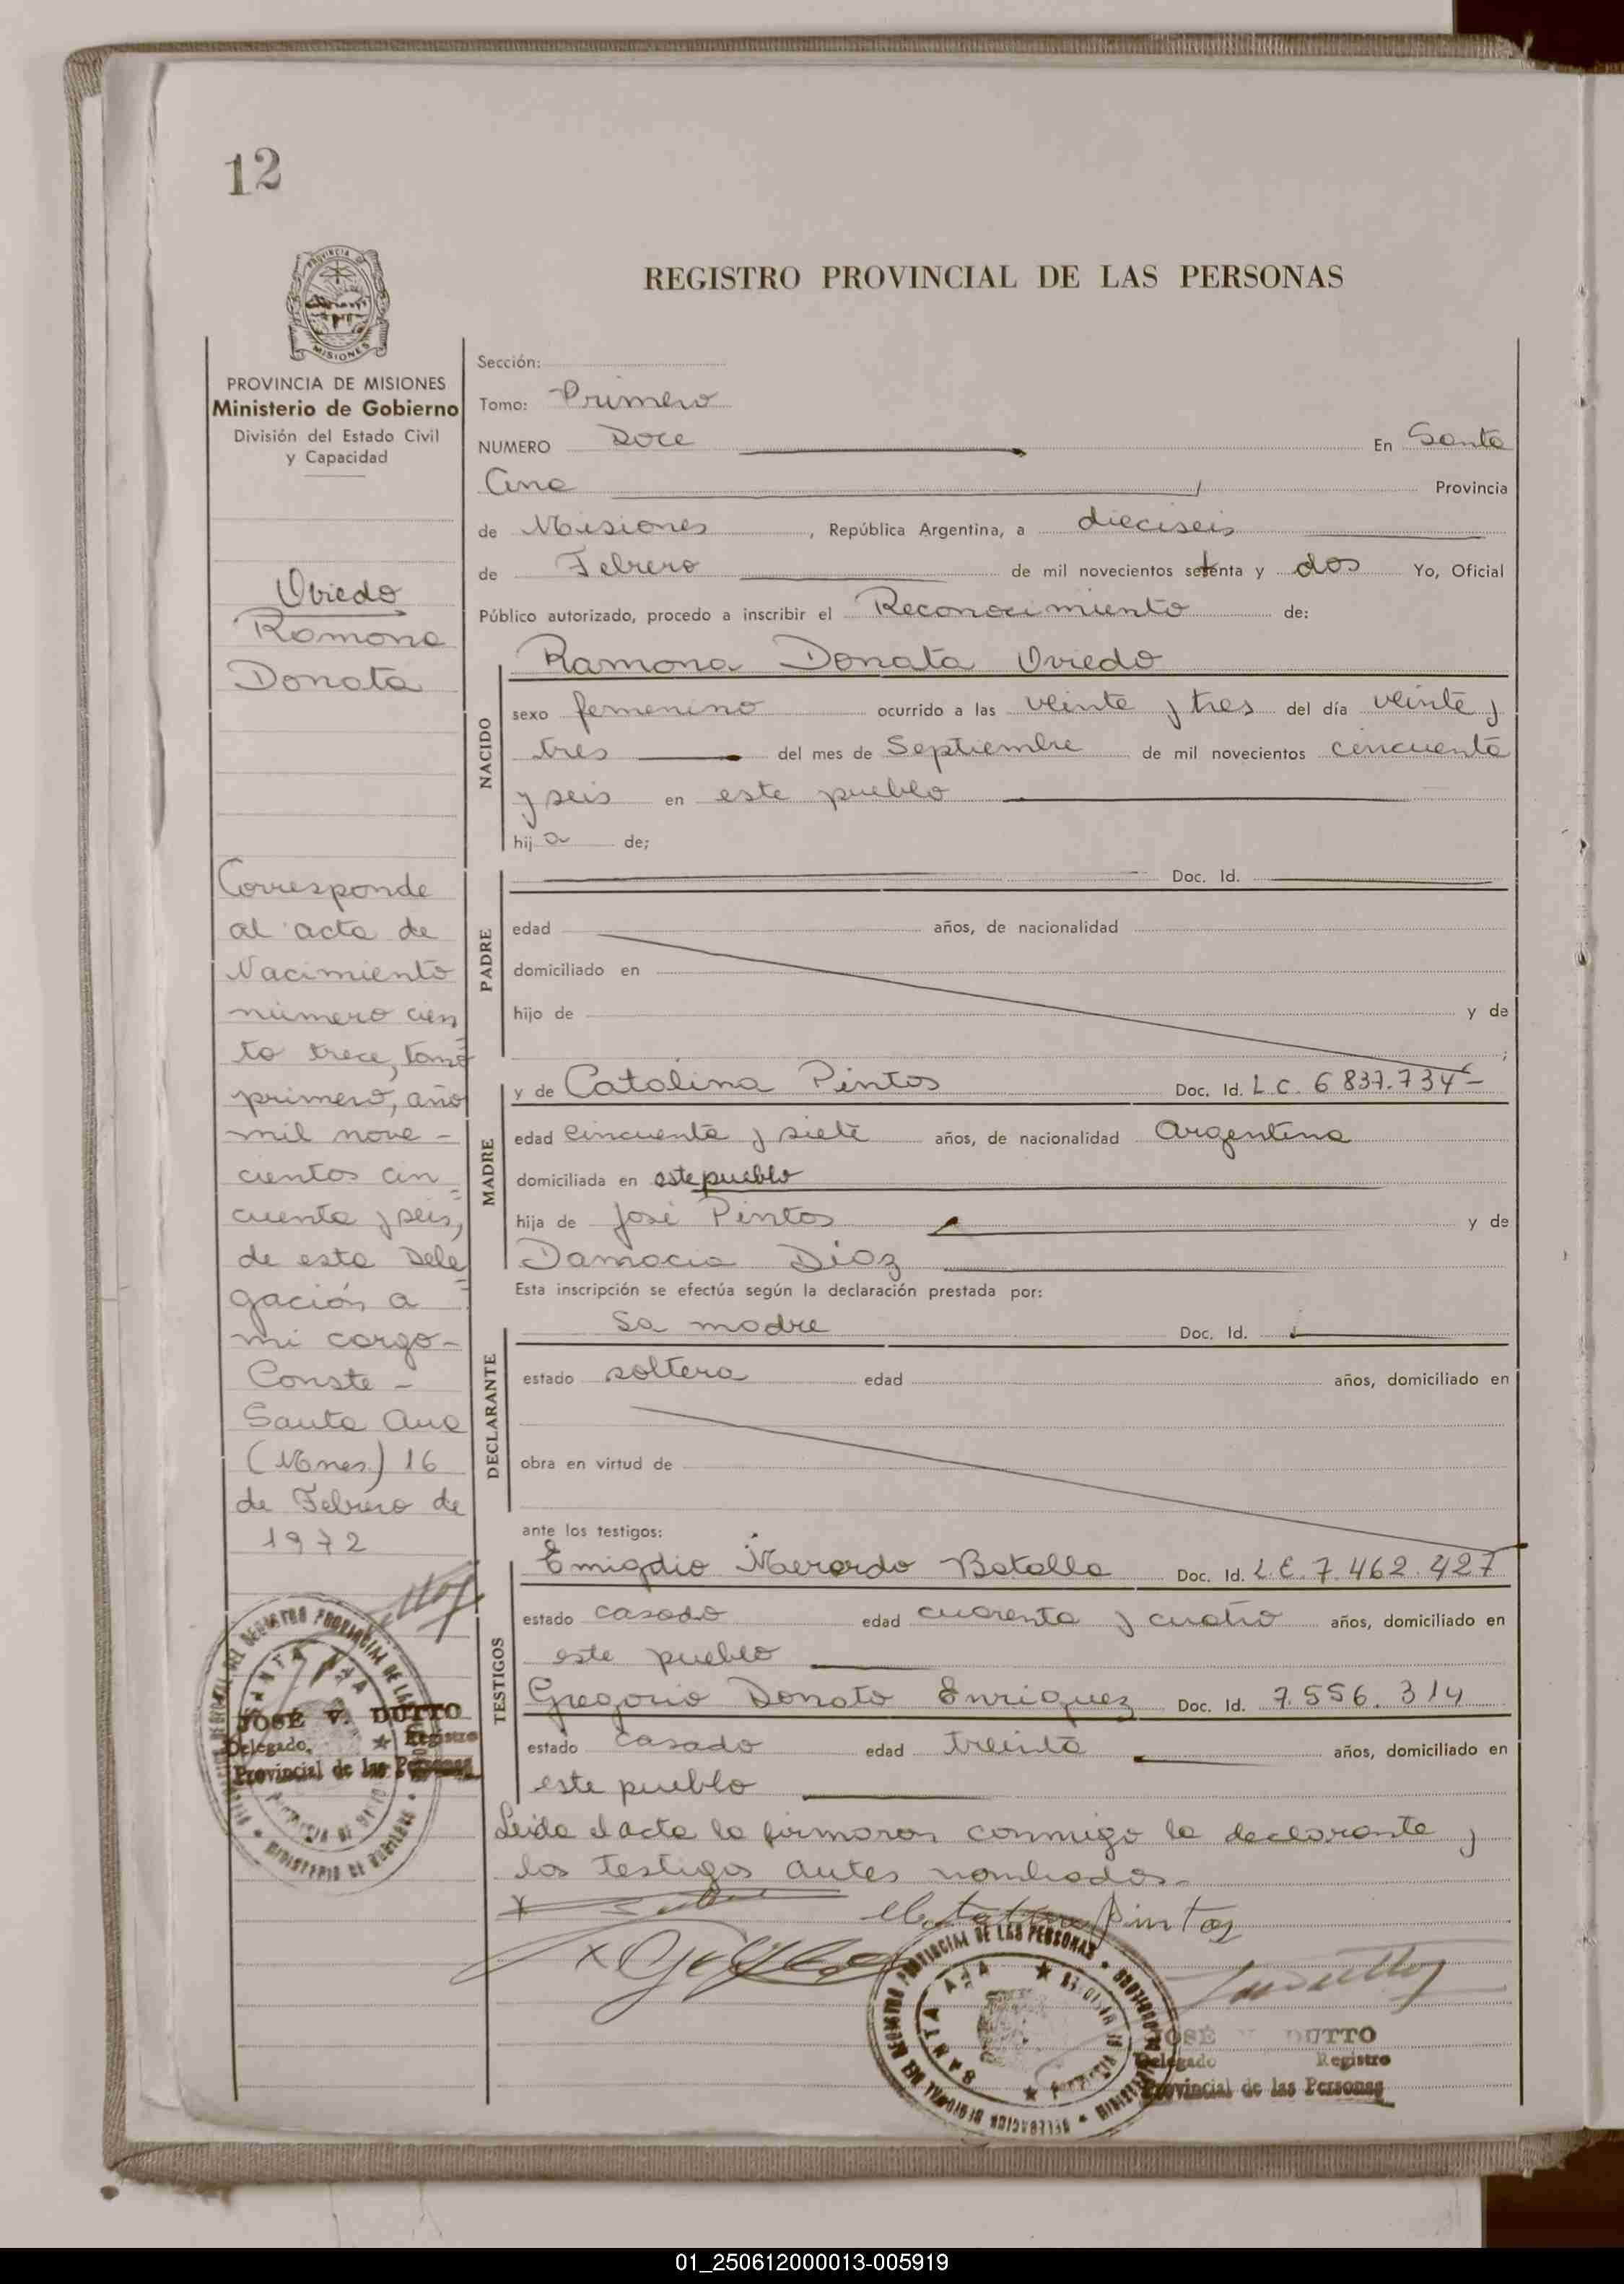 12
PROVINCIA DE MISIONES
MISIONES
PROVINCIA DE MISIONES
Ministerio de Gobierno
División del Estado Civil
y Capacidad
Oviedo
Ramona
Donata
Corresponde
al acta de
Nacimiento
número cien
to trece, tomo
primero, año
mil nove-
cientos cin
cuenta y seis,
de esta Dele
gación a
mi cargo-
Conste-
Santa Ana
(Mnes.) 16
de Febrero de
1972
JOSÉ V. DUTTO
Delegado, Registro
Provincial de las Personas
REGISTRO PROVINCIAL DE LAS PERSONAS
Sección:
Tomo: Primero
NUMERO Doce En Santa
Ana Provincia
de Misiones, República Argentina, a dieciseis
de Febrero de mil novecientos setenta y dos Yo, Oficial
Público autorizado, procedo a inscribir el Reconocimiento de:
NACIDO
Ramona Donata Oviedo
sexo femenino ocurrido a las veinte y tres del día veinte y
tres del mes de Septiembre de mil novecientos cincuenta
y seis en este pueblo
hija de;
PADRE
Doc. Id.
edad años, de nacionalidad
domiciliado en
hijo de y de
;
MADRE
y de Catalina Pintos Doc. Id. L.C. 6837.734-
edad cincuenta y siete años, de nacionalidad Argentina
domiciliada en este pueblo
hija de José Pintos y de
Damacia Diaz
Esta inscripción se efectúa según la declaración prestada por:
DECLARANTE
La madre Doc. Id.
estado soltera edad años, domiciliado en
obra en virtud de
ante los testigos:
TESTIGOS
Emigdio Merardo Batalla Doc. Id. L.E. 7.462.427
estado casado edad cuarenta y cuatro años, domiciliado en
este pueblo
Gregorio Donato Enriquez Doc. Id. 7.556.314
estado casado edad treinta años, domiciliado en
este pueblo
Leida el acta la firmaron conmigo la declarante y
los testigos antes nombrados-
Pintos
DELEGACION REGIONAL DEL REGISTRO PROVINCIAL DE LAS PERSONAS
SANTA ANA
JOSÉ V. DUTTO
Delegado Registro
Provincial de las Personas
01_250612000013-005919